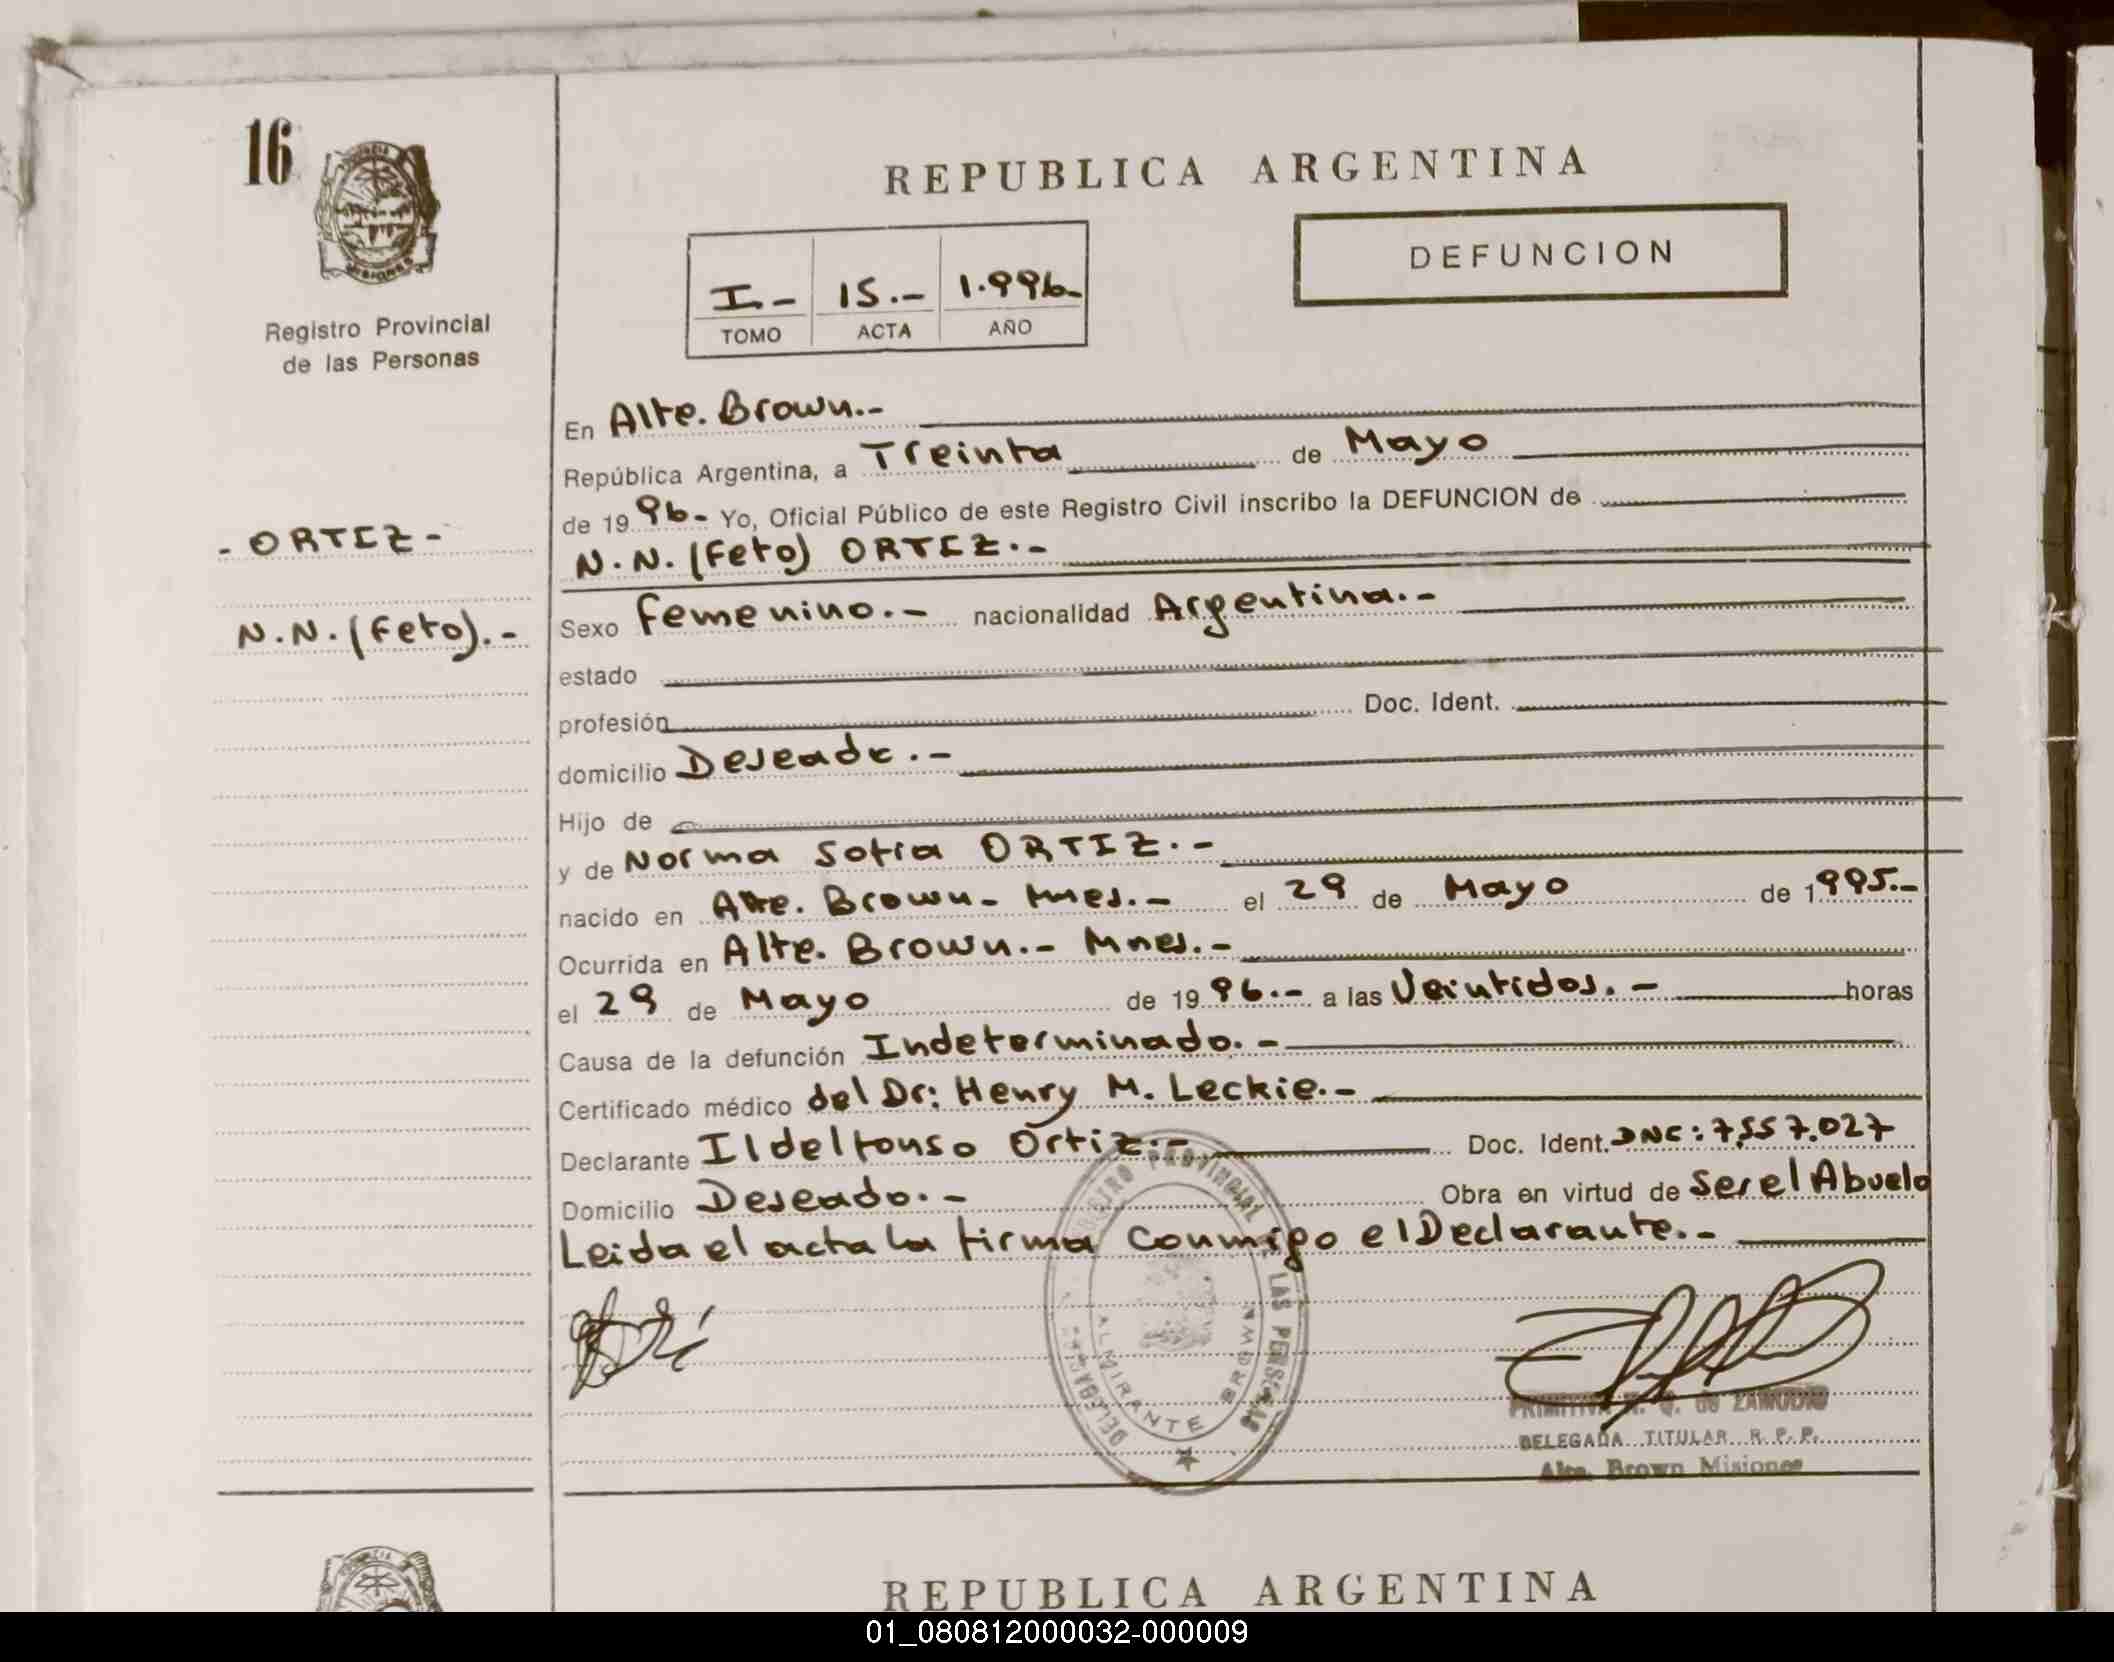 16
Registro Provincial
de las Personas
- ORTIZ -
N.N. (Feto).-
REPUBLICA ARGENTINA
DEFUNCION
I.- 15.- 1.996-
TOMO ACTA AÑO
En Alte. Brown.-
República Argentina, a Treinta de Mayo
de 19 96- Yo, Oficial Público de este Registro Civil inscribo la DEFUNCION de
N.N. (Feto) ORTIZ.-
Sexo Femenino.- nacionalidad Argentina.-
estado
profesión Doc. Ident.
domicilio Deseado.-
Hijo de
y de Norma Sofia ORTIZ.-
nacido en Alte. Brown- Mnes.- el 29 de Mayo de 1995.-
Ocurrida en Alte. Brown.- Mnes.-
el 29 de Mayo de 19 96.- a las Veintidos.- horas
Causa de la defunción Indeterminado.-
Certificado médico del Dr: Henry M. Leckie.-
Declarante Ildelfonso Ortiz.- Doc. Ident. DNI: 7.557.027
Domicilio Deseado.- Obra en virtud de Ser el Abuelo
Leida el acta la firma Conmigo el Declarante.-
REGISTRO PROVINCIAL LAS PERSONAS
DELEGACION
ALMIRANTE BROWN
PRIMITIVA de ZAMUDIO
DELEGADA TITULAR R. P. P.
Alte. Brown Misiones
REPUBLICA ARGENTINA
01_080812000032-000009